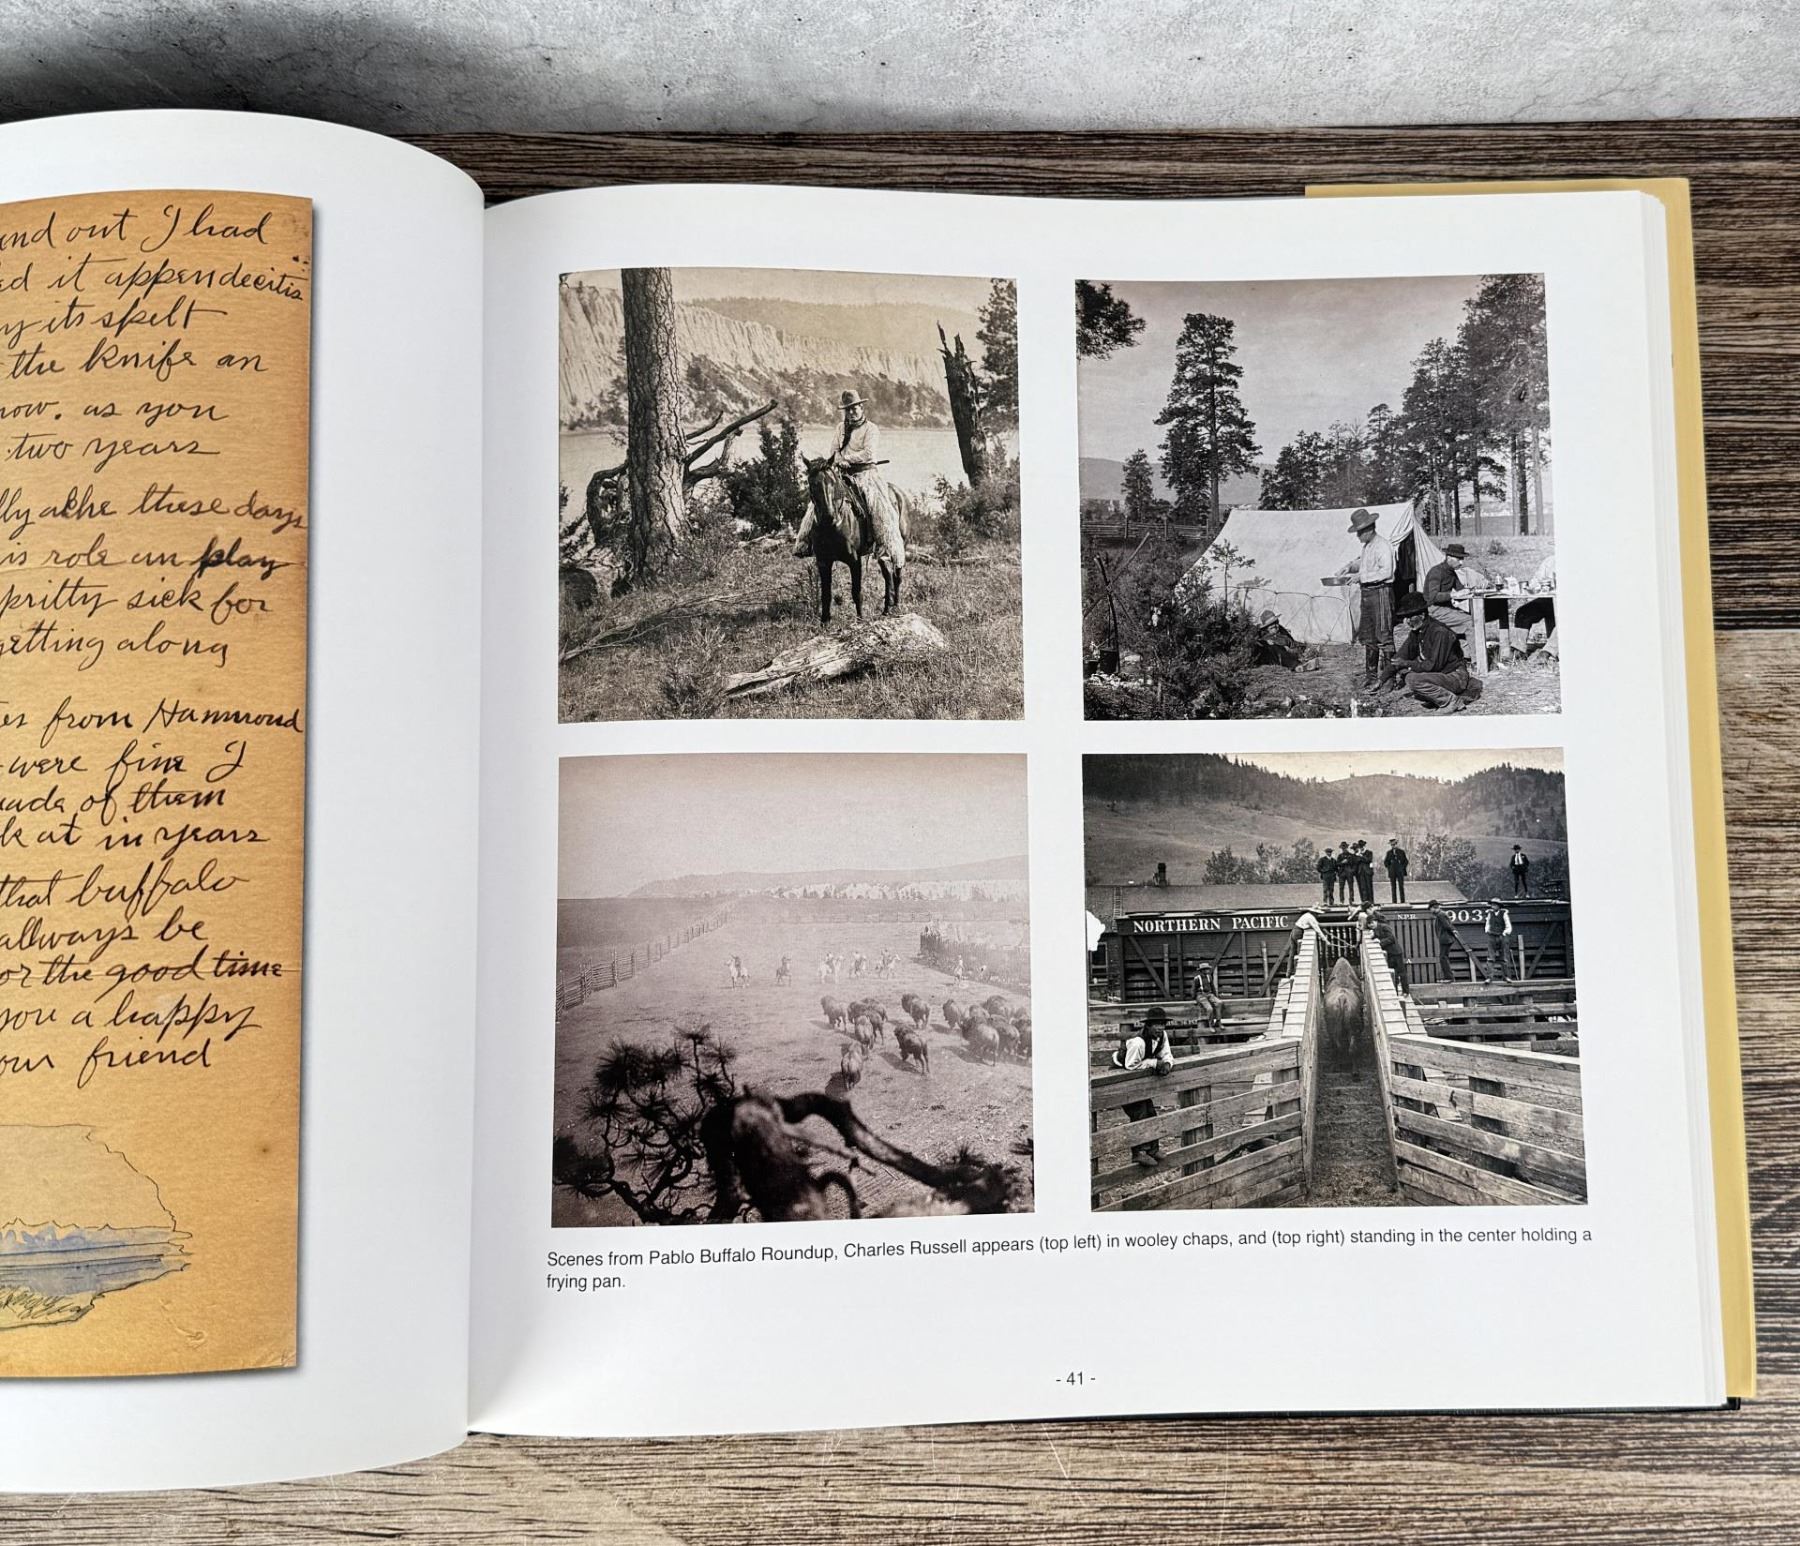 and out I had
ed it appendecitis
y its spelt
the knife an
now. as you
two years
lly ache these days
is role an play
pritty sick for
getting along
from Hammond
were fine I
made of them
k at in years
that buffalo
allways be
or the good time
you a happy
our friend
NORTHERN PACIFIC N.P.R. 903
Scenes from Pablo Buffalo Roundup, Charles Russell appears (top left) in wooley chaps, and (top right) standing in the center holding a
frying pan.
- 41 -